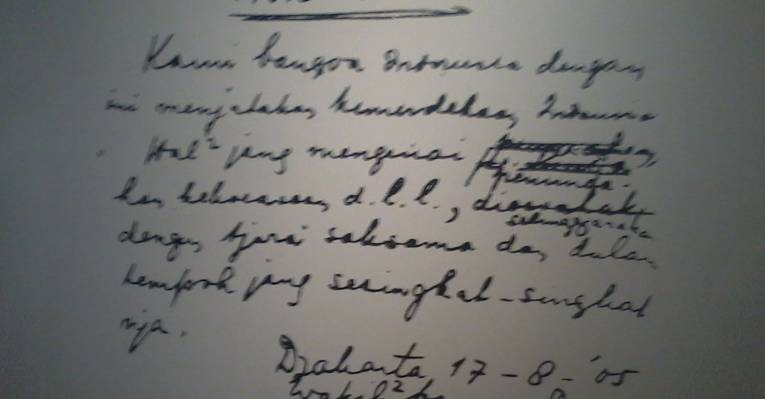 Kami bangsa Indonesia dengan
ini menjatakan kemerdekaan Indonesia
Hal² jang mengenai
peminda-
han kekoeasaan, d.l.l.,
diselenggarakan
dengan tjara saksama dan dalam
tempoh jang sesingkat-singkat
nja.
Djakarta 17 - 8 - '05
Wakil²